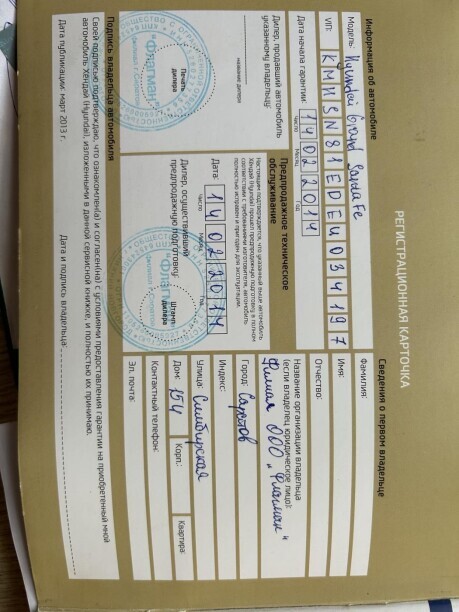 РЕГИСТРАЦИОННАЯ КАРТОЧКА
Информация об автомобиле
Модель: Hyundai Grand SantaFe
VIN: KMHSN81EDEU034197
Дата начала гарантии: 14 02 2014
Число Месяц Год
Дилер, продавший автомобиль
указанному владельцу:
название дилера
Печать
дилера
"Флагман"
Предпродажное техническое
обслуживание
Настоящим подтверждается, что указанный выше автомобиль
Хендай (Hyundai) прошел предпродажную подготовку в полном
соответствии с требованиями изготовителя, автомобиль
полностью исправен и пригоден для эксплуатации.
Дата: 14 02 2014
Число Месяц Год
Дилер, осуществивший
предпродажную подготовку:
Штамп
дилера
"Флагман"
Сведения о первом владельце
Фамилия:
Имя:
Отчество:
Название организации владельца
(если владелец юридическое лицо):
Филиал ООО "Флагман"
Город: Саратов
Индекс:
Улица: Симбирская
Дом: 154 Корп.: Квартира:
Контактный телефон:
Эл. почта:
Подпись владельца автомобиля
Своей подписью подтверждаю, что ознакомлен(а) и согласен(на) с условиями предоставления гарантии на приобретенный мной
автомобиль Хендай (Hyundai), изложенными в данной сервисной книжке, и полностью их принимаю.
Дата публикации: март 2013 г.
Дата и подпись владельца: